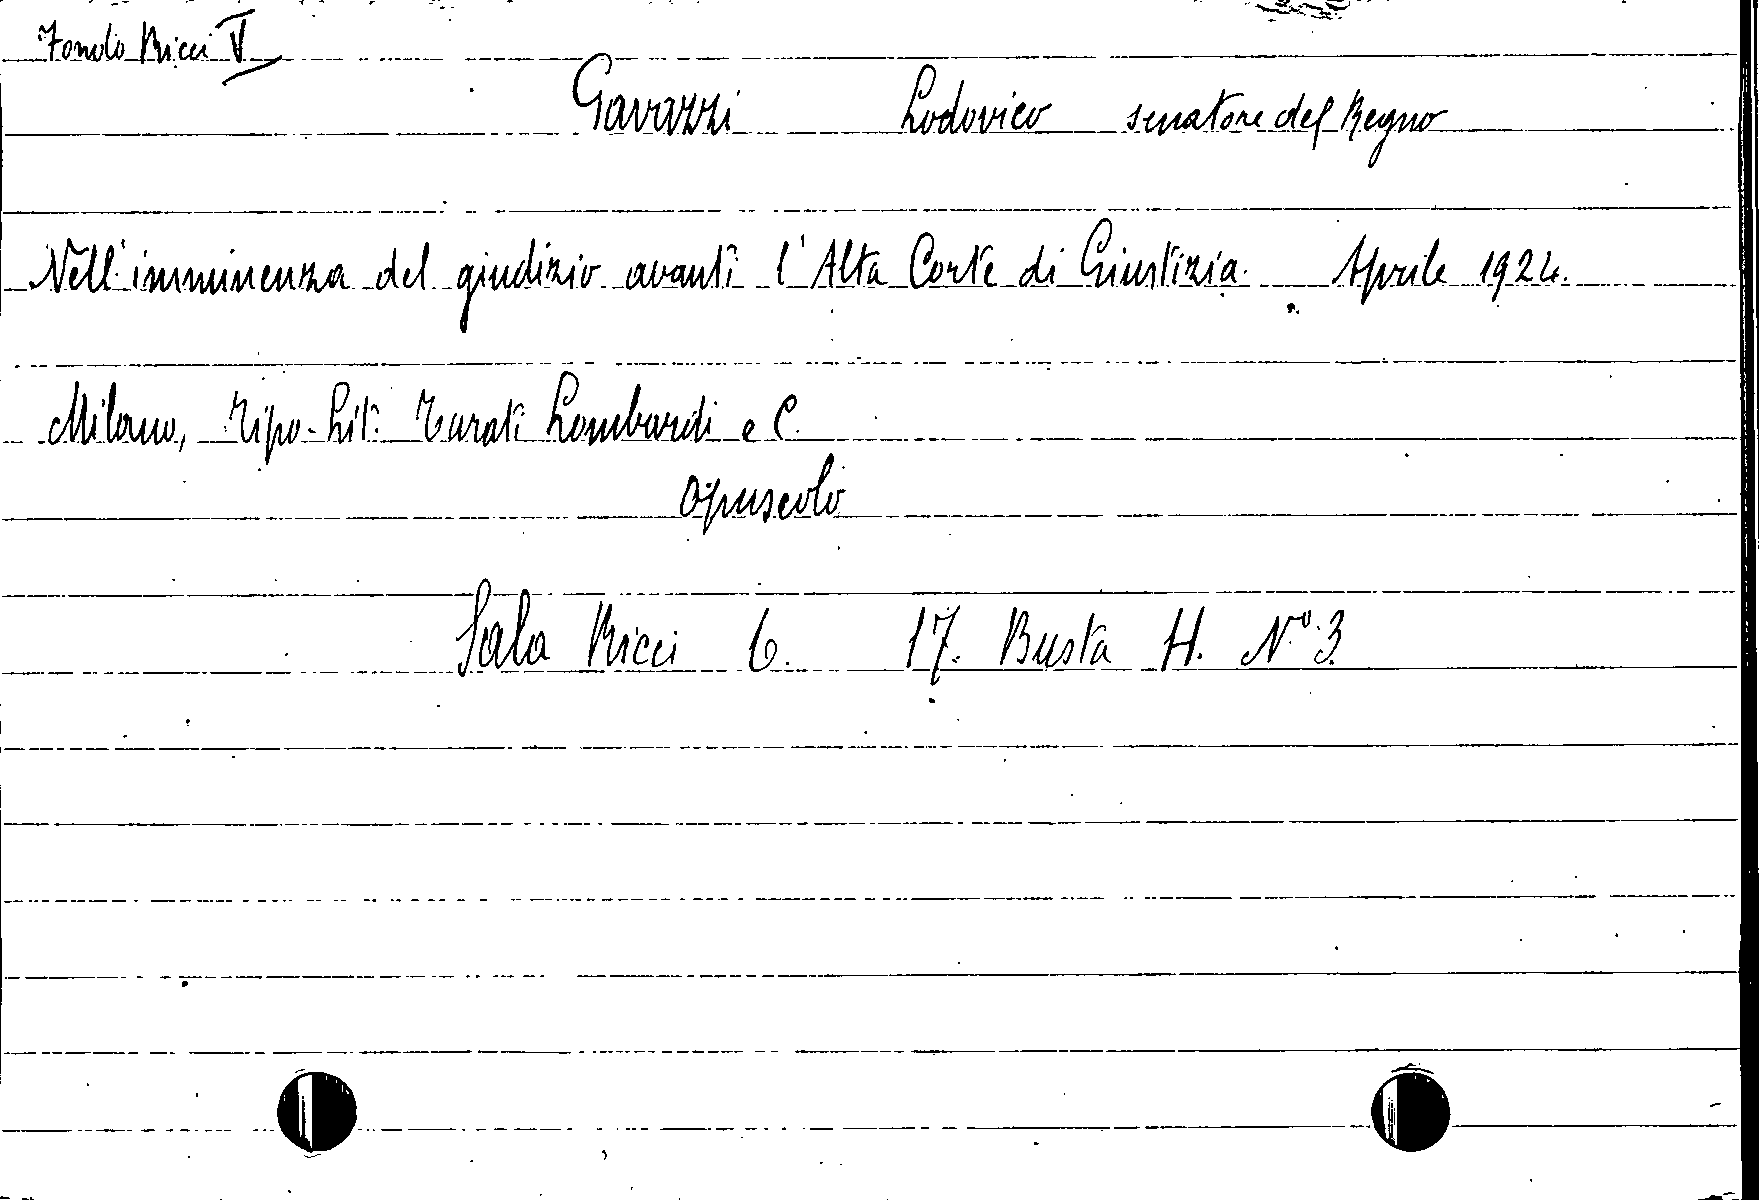 Fondo Ricci V
Gavazzi Lodovico senatore del Regno
Nell'imminenza del giudizio avanti l'Alta Corte di Giustizia. Aprile 1924.
Milano, Tipo-Lit. Turati Lombardi e C.
Opuscolo
Sala Ricci 6. 17. Busta H. N° 3.